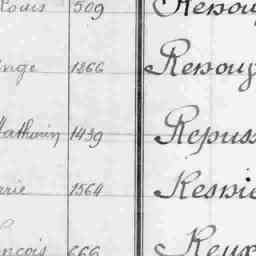 Louis 509 Renou
ange 1866 Renouy
Mathurin 1439 Repuss
rie 1564 Resnie
ançois 666 Reux